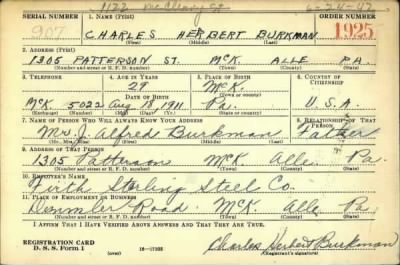 1122 McCleary St. 6-24-42
SERIAL NUMBER 1. NAME (Print) ORDER NUMBER
907 CHARLES HERBERT BURKMAN 1925
(First) (Middle) (Last)
2. ADDRESS (Print)
1305 PATTERSON ST. McK. ALLE. PA.
(Number and street or R. F. D. number) (Town) (County) (State)
3. TELEPHONE 4. AGE IN YEARS 5. PLACE OF BIRTH 6. COUNTRY OF CITIZENSHIP
28 McK.
DATE OF BIRTH (Town or county)
McK. 5022 Aug 18, 1911 Pa. U.S.A.
(Exchange) (Number) (Mo.) (Day) (Yr.) (State or country)
7. NAME OF PERSON WHO WILL ALWAYS KNOW YOUR ADDRESS 8. RELATIONSHIP OF THAT PERSON
J. Alfred Burkman Father
(Mr., Mrs., Miss) (First) (Middle) (Last)
9. ADDRESS OF THAT PERSON
1305 Patterson McK. Alle. Pa.
(Number and street or R. F. D. number) (Town) (County) (State)
10. EMPLOYER'S NAME
Firth Sterling Steel Co.
11. PLACE OF EMPLOYMENT OR BUSINESS
Demmler Road McK. Alle. Pa.
(Number and street or R. F. D. number) (Town) (County) (State)
I AFFIRM THAT I HAVE VERIFIED ABOVE ANSWERS AND THAT THEY ARE TRUE.
REGISTRATION CARD
D. S. S. Form 1 (over) 16-17105 Charles Herbert Burkman
(Registrant's signature)